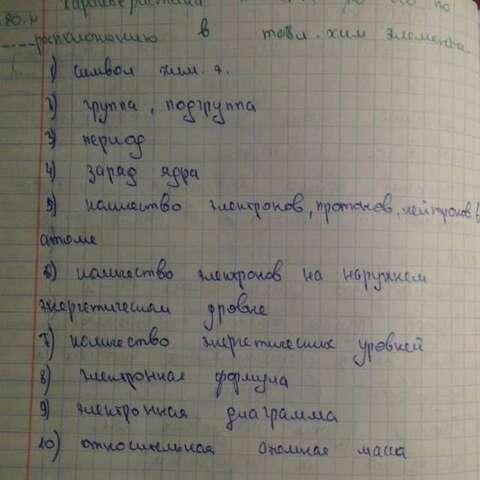 характеристика по
расположению в табл. хим элемента
1) символ хим. э.
2) группа, подгруппа
3) период
4) заряд ядра
5) количество электронов, протонов, нейтронов в
атоме
6) количество электронов на наружнем
энергетическом уровне
7) количество энергетических уровней
8) электронная формула
9) электронная диаграмма
10) относительная атомная масса